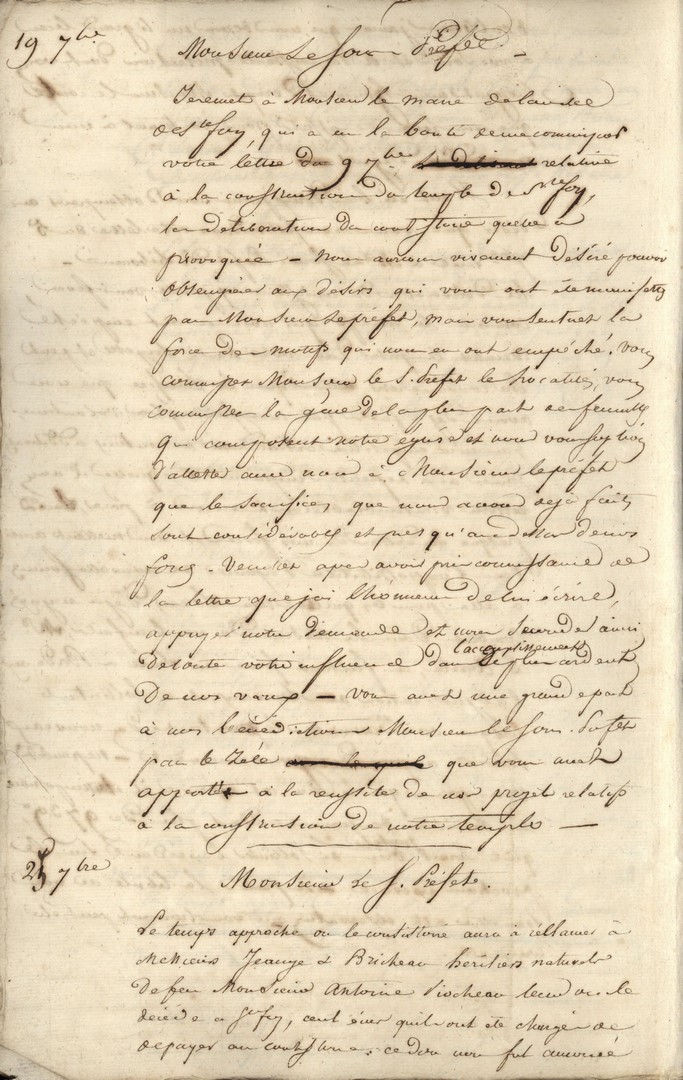 19 7bre
Monsieur Le Sous Préfet
Je remet à Monsieur le maire de la ville
de Ste foy, qui a eu la bonté de me communiquer
votre lettre du 9 7bre relative
à la construction du temple de Ste foy,
la délibération du consistoire quelle a
provoquée - nous aurions vivement désiré pouvoir
obtempérer aux désirs qui vous ont été manifestés
par Monsieur Le prefet, mais vous sentirez la
force des motifs qui nous en ont empéché. vous
connaissez Monsieur le S. Prefet les localités, vous
connaissez la gêne de la plus part des familles
qui composent notre église et nous vous
d'attester avec nous à Monsieur le préfet
que les sacrifices, que nous avons déjà faits
sont considérables et presqu'au dessus de nos
forces. Veuillez apres avoir pris connaissance de
la lettre que jai l'honneur de lui écrire,
appuyer notre demande et nous seconder ainsi
de toute votre influence dans l'accomplissement
plus ardents
De nos vœux - vous avez une grande part
à nos bénédictions Monsieur le Sous-Prefet
par le zèle que vous avez
apporté à la reussite de nos projets relatifs
à la construction de notre temple —
25 7bre
Monsieur Le S. Préfet.
Le temps approche ou le consistoire aura à réclamer à
Messieurs Jeauge & Bricheau héritiers naturels
de feu Monsieur Antoine Piocheau
décédé a Ste foy, cent écus quils ont été chargés de
de payer au consistoire. ce don nous fut annoncé